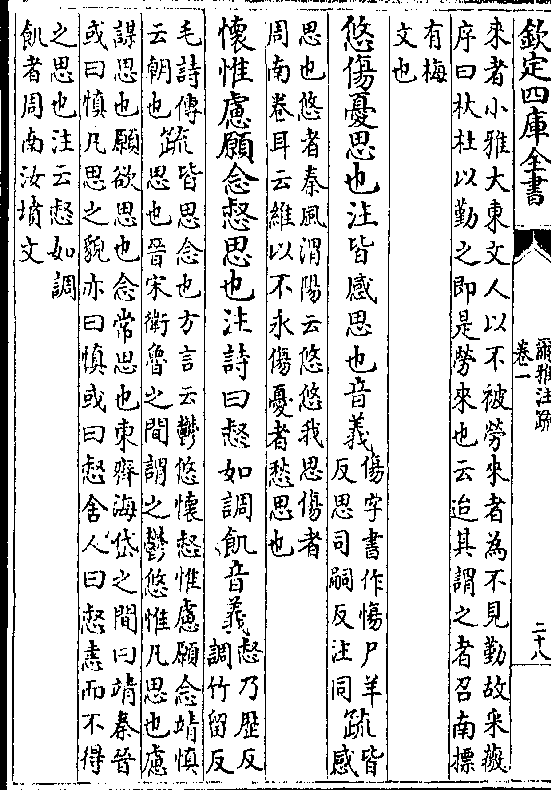 欽定四庫全書
爾雅注疏
卷一
二十八
來者小雅大東文人以不被勞來者為不見勤故采薇
序曰杕杜以勤之即是勞來也云迨其謂之者召南摽
有梅
文也
悠傷憂思也注皆感思也音義傷字書作慯尸羊
反思司嗣反注同疏皆感
思也悠者秦風渭陽云悠悠我思傷者
周南卷耳云維以不永傷憂者愁思也
懷惟慮願念惄思也注詩曰惄如調飢音義惄乃歷反
調竹留反
毛詩傳
云朝也疏皆思念也方言云鬱悠懷惄惟慮願念靖慎
思也晉宋衛魯之間謂之鬱悠惟凡思也慮
謀思也願欲思也念常思也東齊海岱之間曰靖秦晉
或曰慎凡思之貌亦曰慎或曰惄舍人曰惄恚而不得
之思也注云惄如調
飢者周南汝墳文